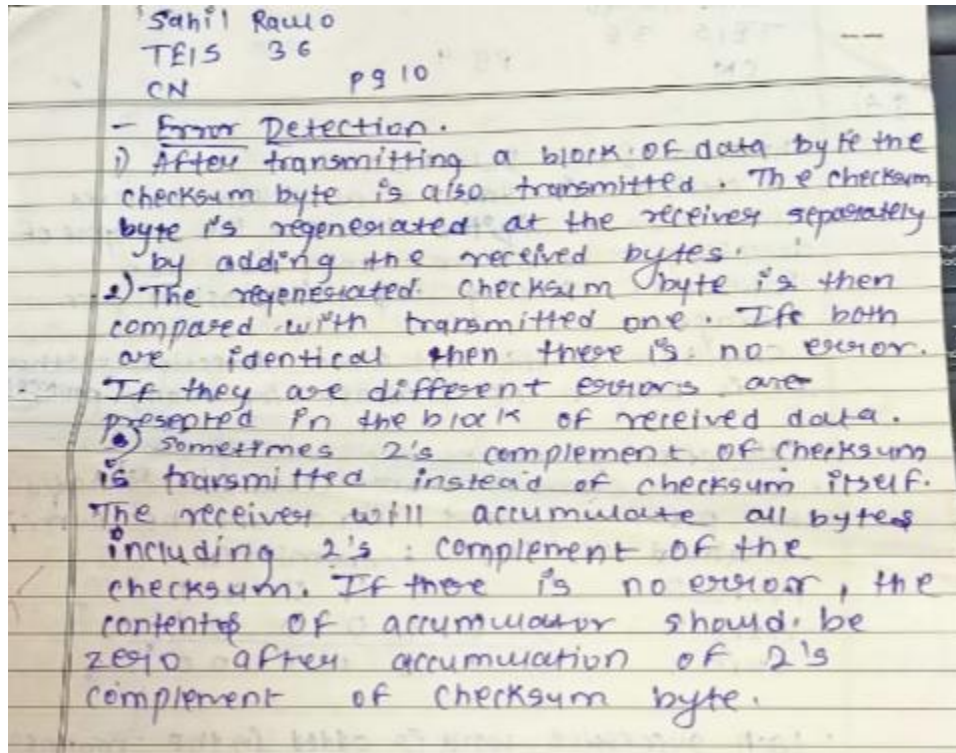 Sahil Rawlo
TEIS 36
CN pg 10
- Error Detection.
1) After transmitting a block of data byte the
checksum byte is also transmitted. The checksum
byte is regenerated at the receiver separately
by adding the received bytes.
2) The regenerated checksum byte is then
compared with transmitted one. If both
are identical then there is no error.
If they are different errors are
presepted in the block of received data.
3) Sometimes 2's complement of checksum
is transmitted instead of checksum itself.
The receiver will accumulate all bytes
including 2's complement of the
checksum. If there is no error, the
contents of accumulator should be
zero after accumulation of 2's
complement of checksum byte.